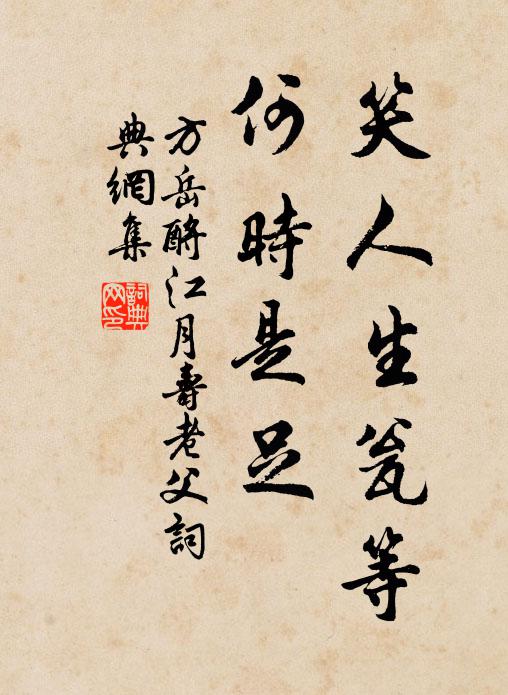 笑人生瓮等
何時是足
方岳酹江月壽老父詞
典網集
詞典
网印